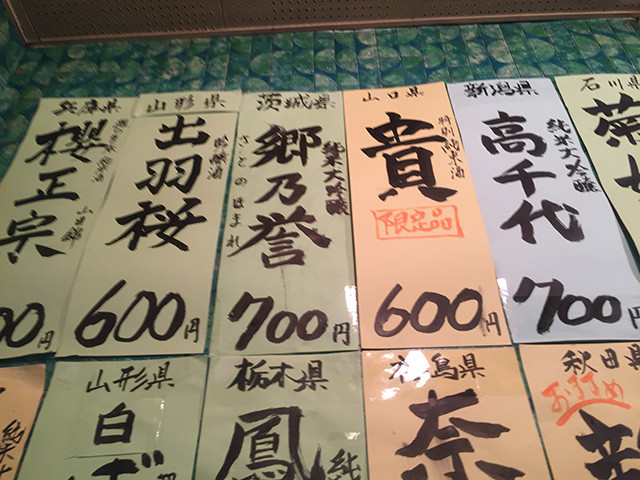 兵庫県
櫻正宗
00円
山形県
出羽桜
吟醸酒
600円
茨城県
郷乃誉
さとのほまれ
純米大吟醸
700円
山口県
貴
特別純米酒
限定品
600円
新潟県
高千代
純米大吟醸
700円
石川県
菊
山形県
白
栃木県
鳳
純
福島県
奈
秋田県
おすすめ